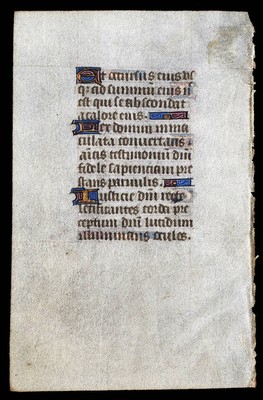 Et occursus eius us
q; ad summum eius n
est qui se abscondat
a calore eius.
Lex domini inma
culata convertens
aīas testimonium dn̄i
fidele sapientiam pre
stans parvulis.
Iusticie dn̄i recte
letificantes corda pre
ceptum dn̄i lucidum
illuminans oculos.